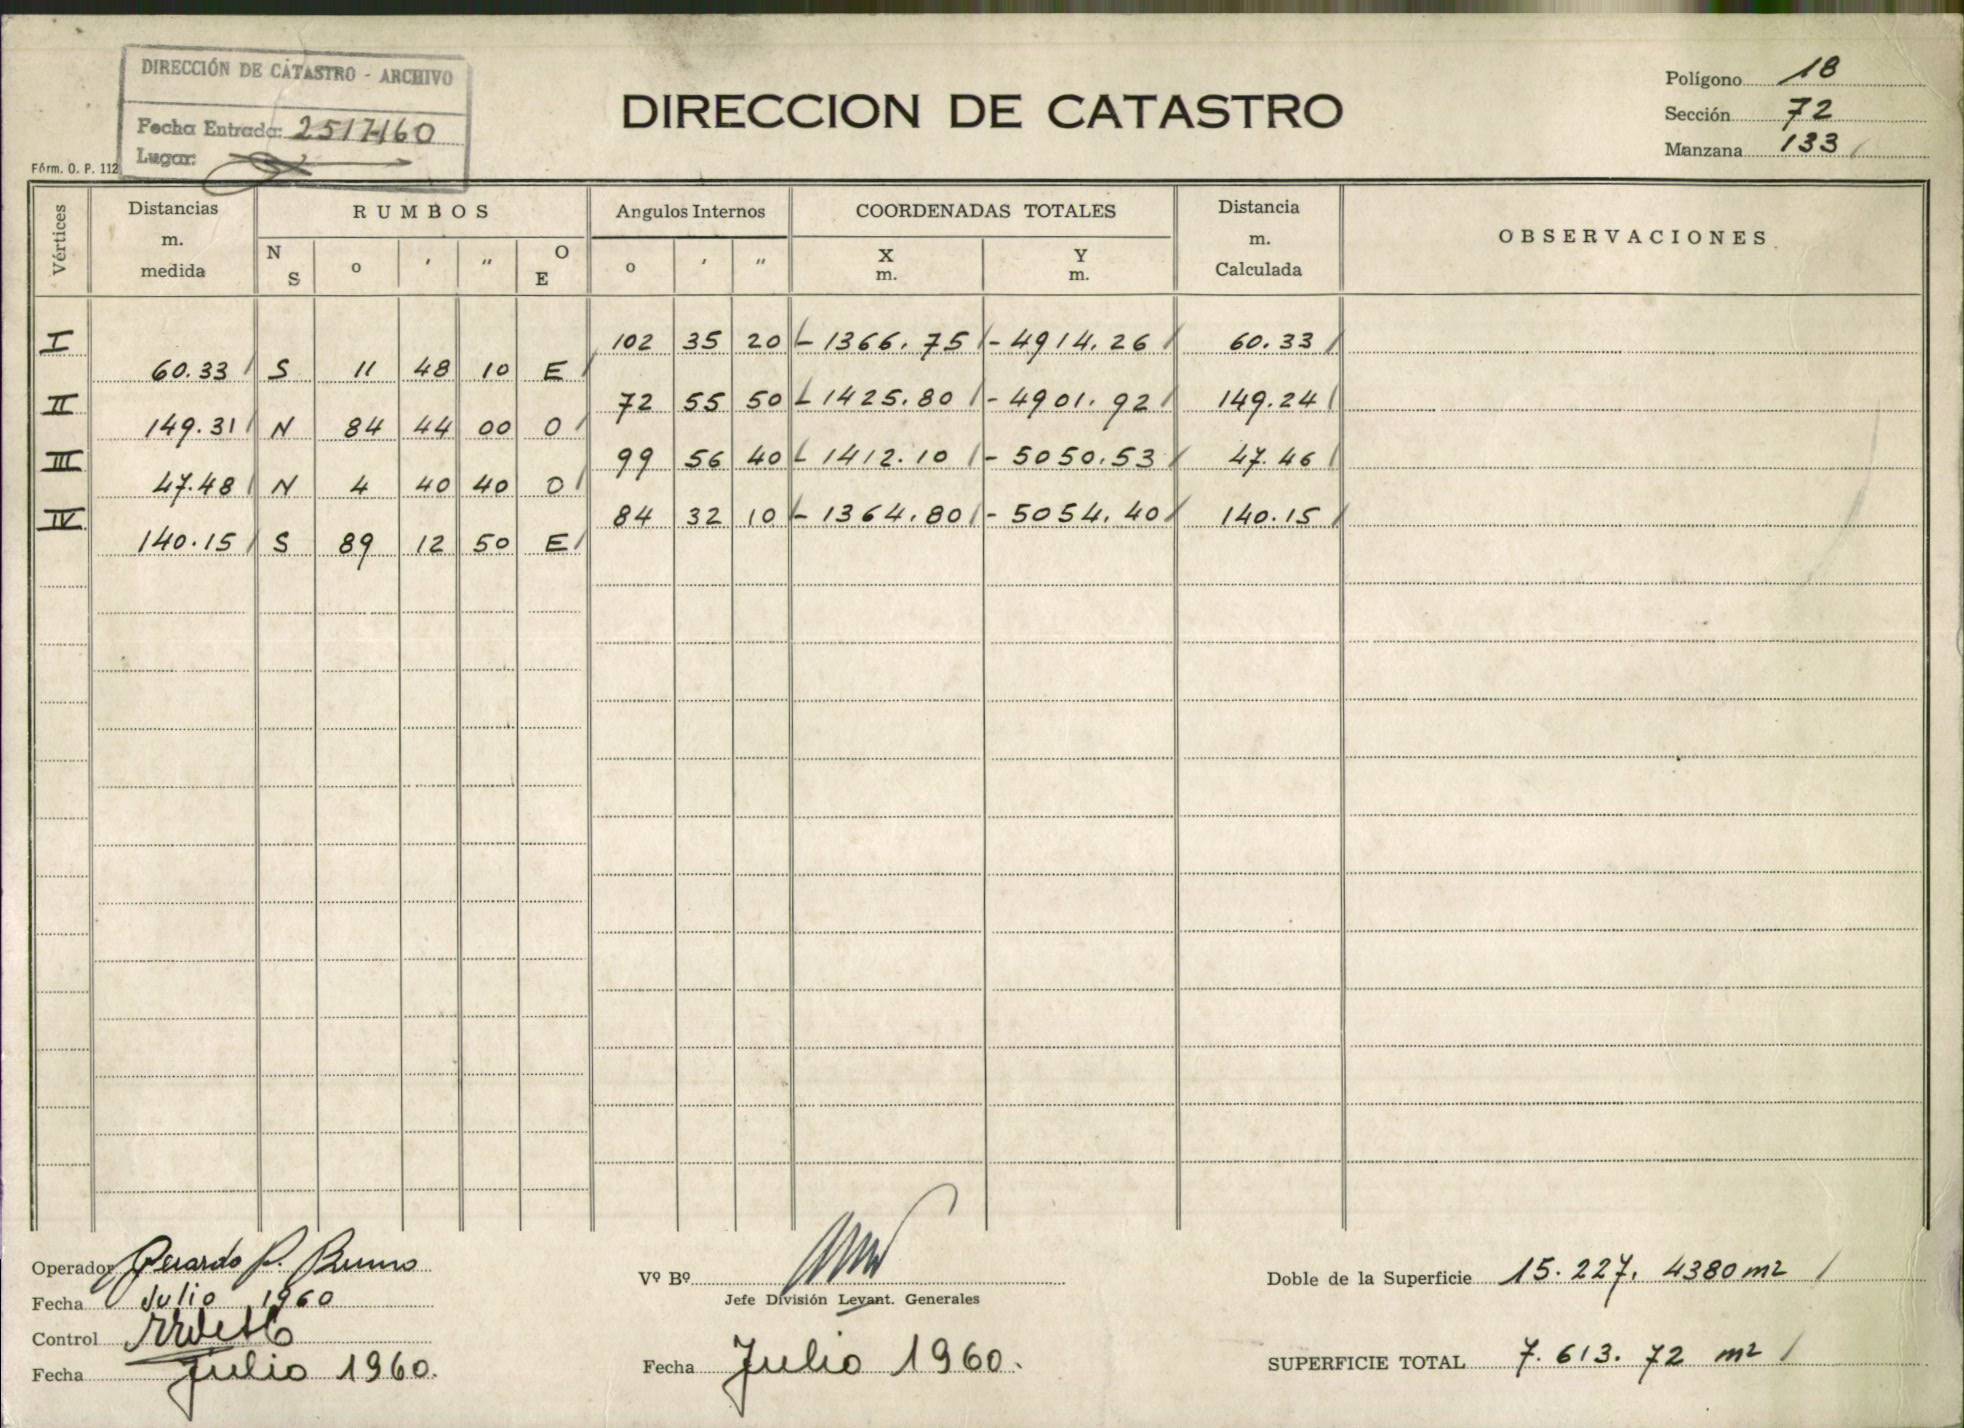 DIRECCIÓN DE CATASTRO - ARCHIVO
Fecha Entrada: 25/7/60
Lugar:
Fórm. O. P. 112
DIRECCION DE CATASTRO
Polígono 18
Sección 72
Manzana 133
Vértices Distancias m. medida RUMBOS Angulos Internos COORDENADAS TOTALES Distancia m. Calculada OBSERVACIONES
N S o ' " O E o ' " X m. Y m.
I 102 35 20 - 1366.75 - 4914.26 60.33
60.33 S 11 48 10 E
II 72 55 50 - 1425.80 - 4901.92 149.24
149.31 N 84 44 00 O
III 99 56 40 - 1412.10 - 5050.53 47.46
47.48 N 4 40 40 O
IV 84 32 10 - 1364.80 - 5054.40 140.15
140.15 S 89 12 50 E
Operador Gerardo P. Bruno
Fecha Julio 1960
Control
Fecha Julio 1960.
Vº Bº
Jefe División Levant. Generales
Fecha Julio 1960.
Doble de la Superficie 15.227.4380 m2
SUPERFICIE TOTAL 7.613.72 m2